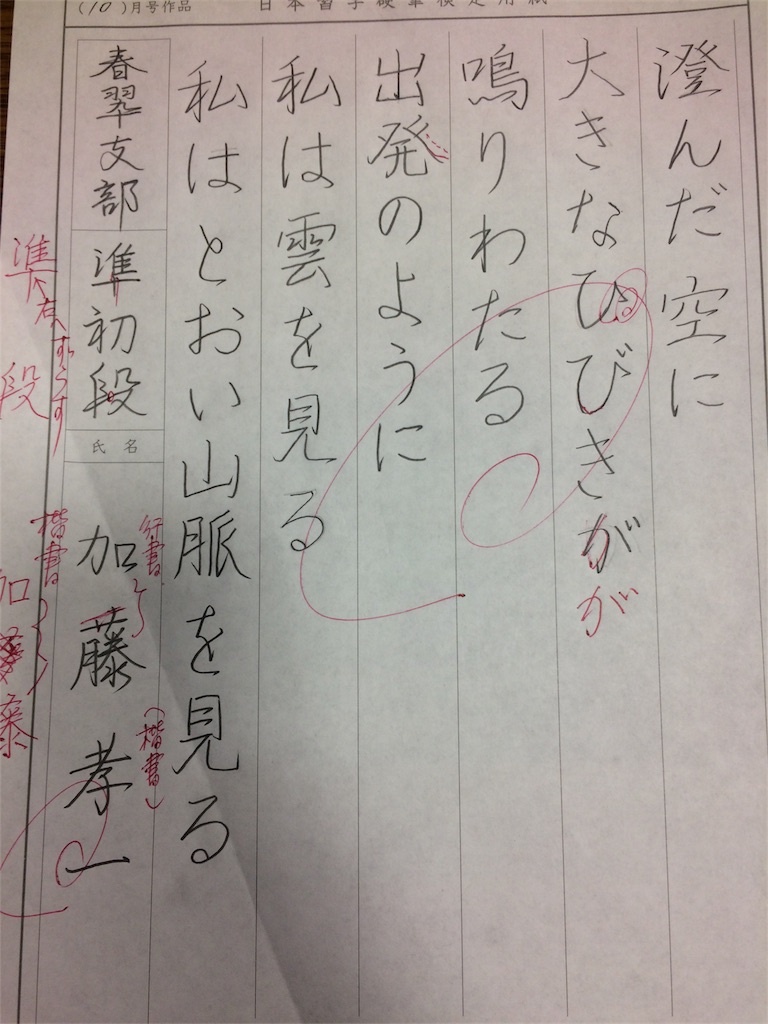 (10)月号作品 日本習字硬筆検定用紙
澄んだ空に
大きなひびきが
が
鳴りわたる
出発のように
私は雲を見る
私はとおい山脈を見る
春翠支部
準初段
氏名
加藤孝一
行書
(楷書)
準
右へずらす
段
楷書
加
藤